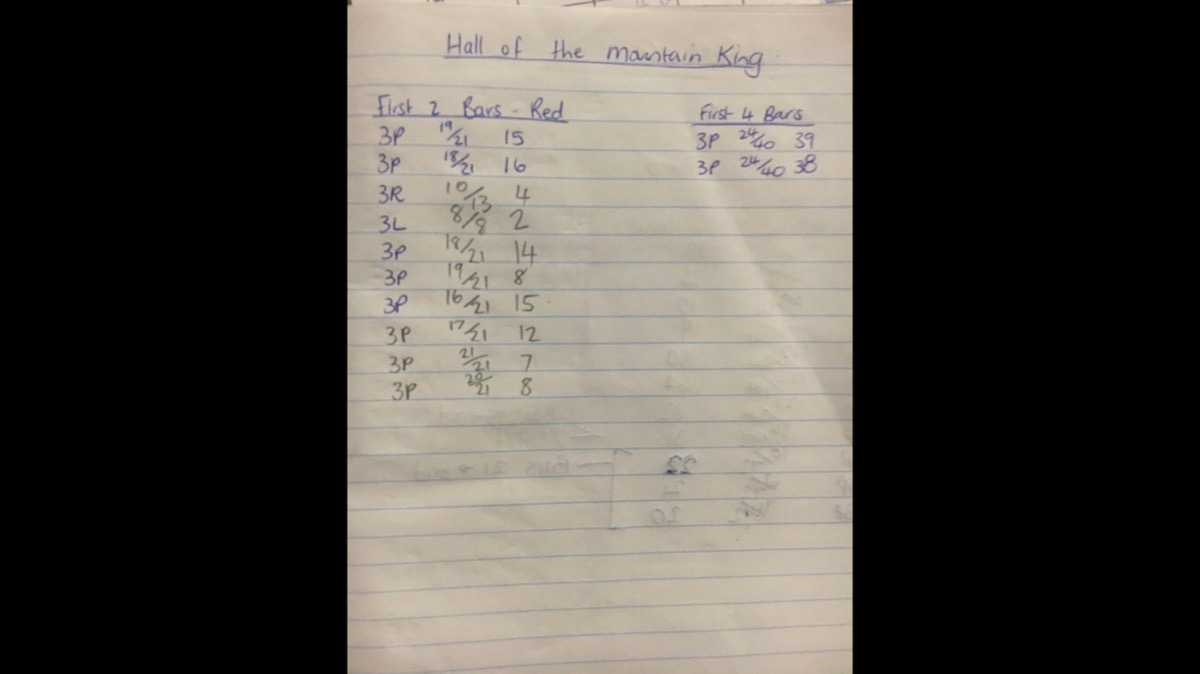 Hall of the Mountain King
First 2 Bars - Red
3P 19/21 15
3P 18/21 16
3R 10/13 4
3L 8/8 2
3P 18/21 14
3P 19/21 8
3P 16/21 15
3P 17/21 12
3P 21/21 7
3P 20/21 8
First 4 Bars
3P 24/40 39
3P 24/40 38